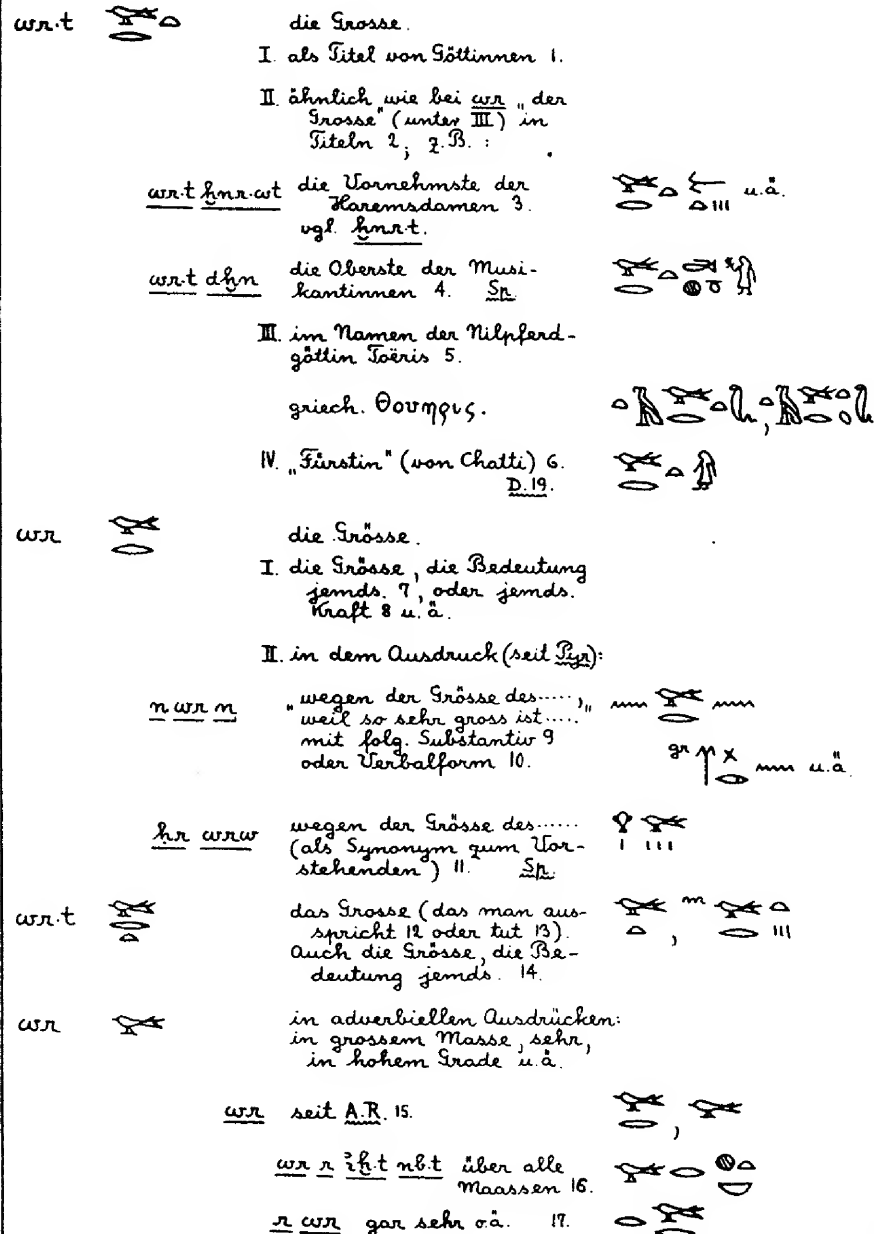 wr.t 𓅨𓂋𓏏 die Grosse.
I. als Titel von Göttinnen 1.
II. ähnlich wie bei wr „der
Grosse" (unter III) in
Titeln 2; z.B.:
wr.t ḫnr.wt die Vornehmste der u.ä.
Haremsdamen 3.
vgl. ḫnr.t.
wr.t dḫn die Oberste der Musi-
kantinnen 4. Sp.
III. im Namen der Nilpferd-
göttin Toëris 5.
griech. Θουηρις.
IV. „Fürstin" (von Chatti) 6.
D. 19.
wr 𓅨𓂋 die Grösse.
I. die Grösse, die Bedeutung
jemds. 7, oder jemds.
Kraft 8 u.ä.
II. in dem Ausdruck (seit Pyr):
n wr n „wegen der Grösse des....., 𓈖𓅨𓂋𓈖
weil so sehr gross ist....."
mit folg. Substantiv 9
oder Verbalform 10. gr u.ä.
ḥr wrw wegen der Grösse des...... 𓁷𓏤𓅨𓏥
(als Synonym zum Vor-
stehenden) 11. Sp.
wr.t 𓅨𓂋𓏏 das Grosse (das man aus- 𓅨𓏏, m 𓅨𓂋𓏏𓏥
spricht 12 oder tut 13).
Auch die Grösse, die Be-
deutung jemds. 14.
wr 𓅨 in adverbiellen Ausdrücken:
in grossem Masse, sehr,
in hohem Grade u.ä.
wr seit A.R. 15. 𓅨𓂋, 𓅨
wr r ỉḫ.t nb.t über alle 𓅨𓂋𓐍𓏏𓎟
Maassen 16.
r wr gar sehr o.ä. 17. 𓂋𓅨𓂋